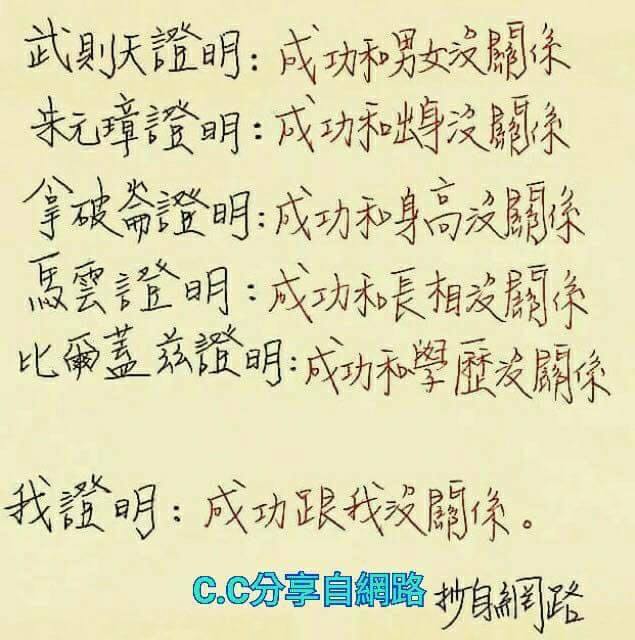 武則天證明：成功和男女沒關係
朱元璋證明：成功和出身沒關係
拿破崙證明：成功和身高沒關係
馬雲證明：成功和長相沒關係
比爾蓋茲證明：成功和學歷沒關係
我證明：成功跟我沒關係。
C.C分享自網路
抄自網路